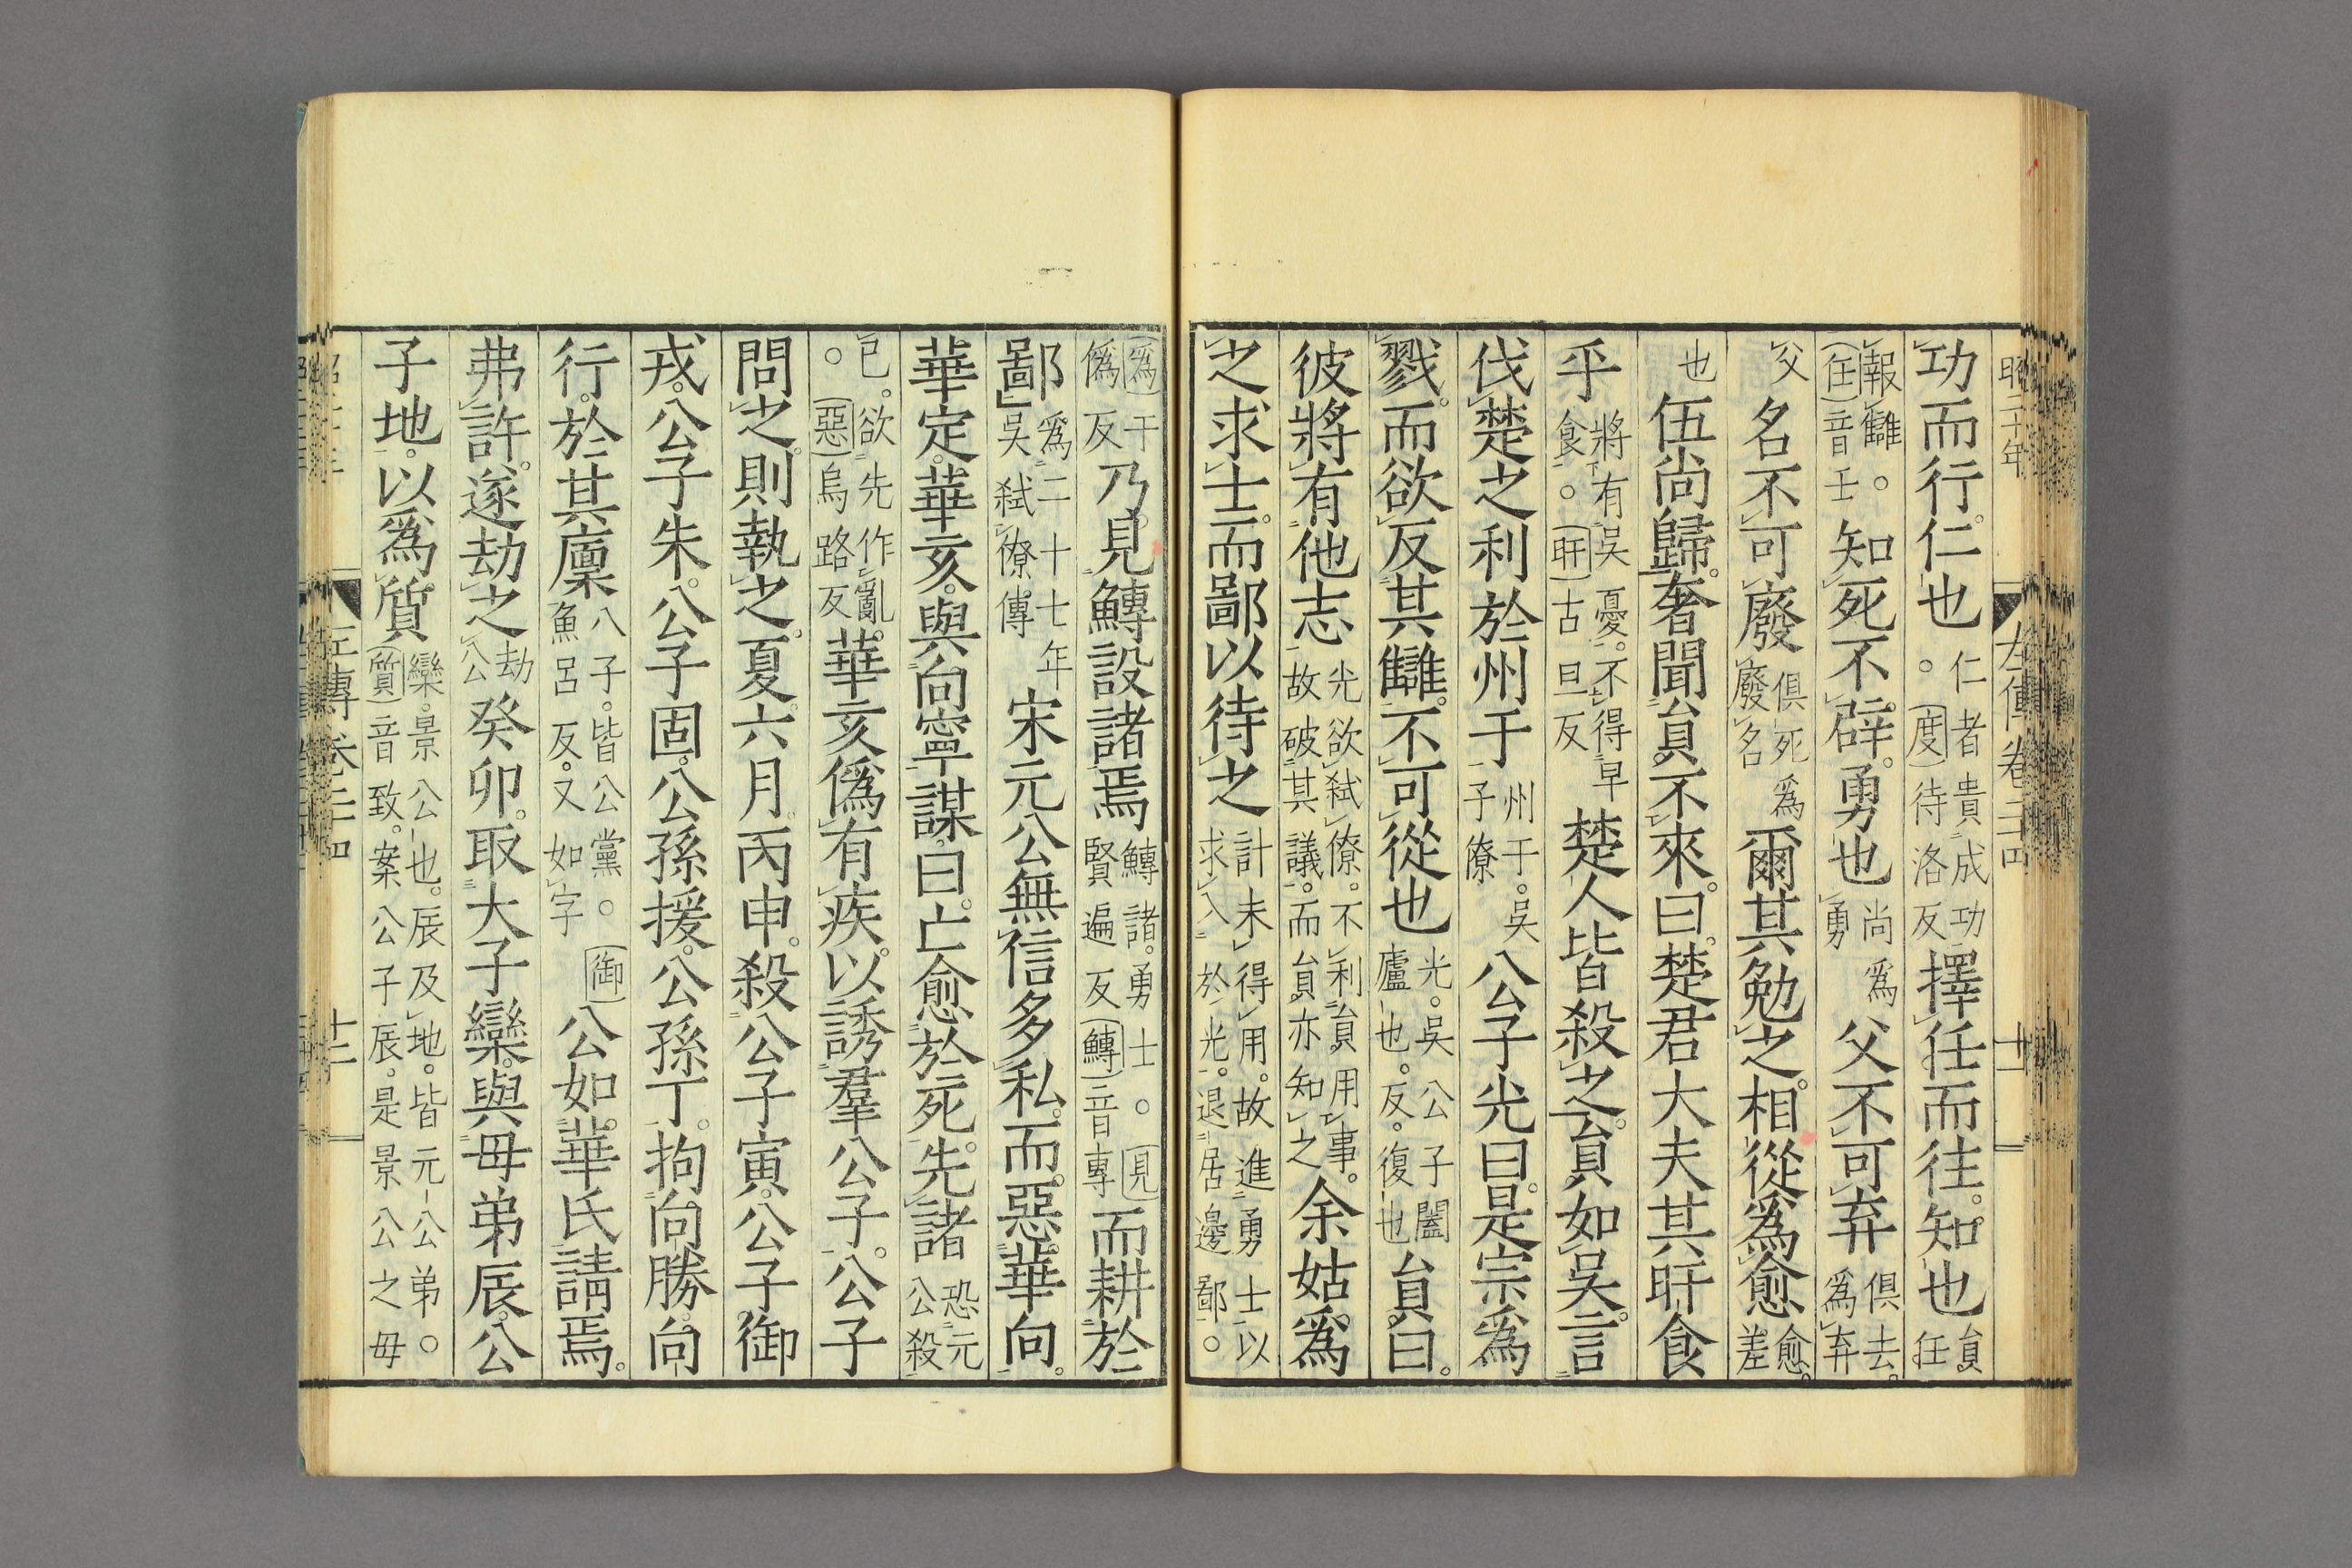 昭二十年　左傳卷二十四　十一
功而行。仁也仁者貴成功。度待洛反擇任而往。知也員任
報讎。任音壬知死不辟。勇也尚爲勇父不可弃俱去。爲弃
父名不可廢俱死爲廢名爾其勉之。相從爲愈愈。差
也伍尚歸。奢聞員不來。曰。楚君大夫其旰食
乎將有吳憂。不得早食。旰古旦反楚人皆殺之。員如吳。言
伐楚之利於州于州于。吳子僚公子光曰。是宗爲
戮。而欲反其讎。不可從也光。吳公子闔廬也。反。復也員曰。
彼將有他志光欲弒僚。不利員用事。故破其議。而員亦知之余姑爲
之求士。而鄙以待之計未得用。故進勇士以求入於光。退居邊鄙。
爲于僞反乃見鱄設諸焉鱄諸。勇士。見賢遍反鱄音專而耕於
鄙爲二十七年吳弒僚傳宋元公無信多私。而惡華向。
華定。華亥。與向寧謀。曰。亡愈於死。先諸恐元公殺
已。欲先作亂。惡烏路反華亥僞有疾。以誘羣公子。公子
問之。則執之。夏。六月。丙申。殺公子寅。公子御
戎。公子朱。公子固。公孫援。公孫丁。拘向勝。向
行。於其廩八子。皆公黨。御魚呂反。又如字公如華氏請焉。
弗許。遂劫之劫公癸卯。取大子欒。與毋弟辰。公
子地。以爲質欒。景公也。辰及地。皆元公弟。質音致。案公子辰。是景公之毋
左傳卷二十四　十二